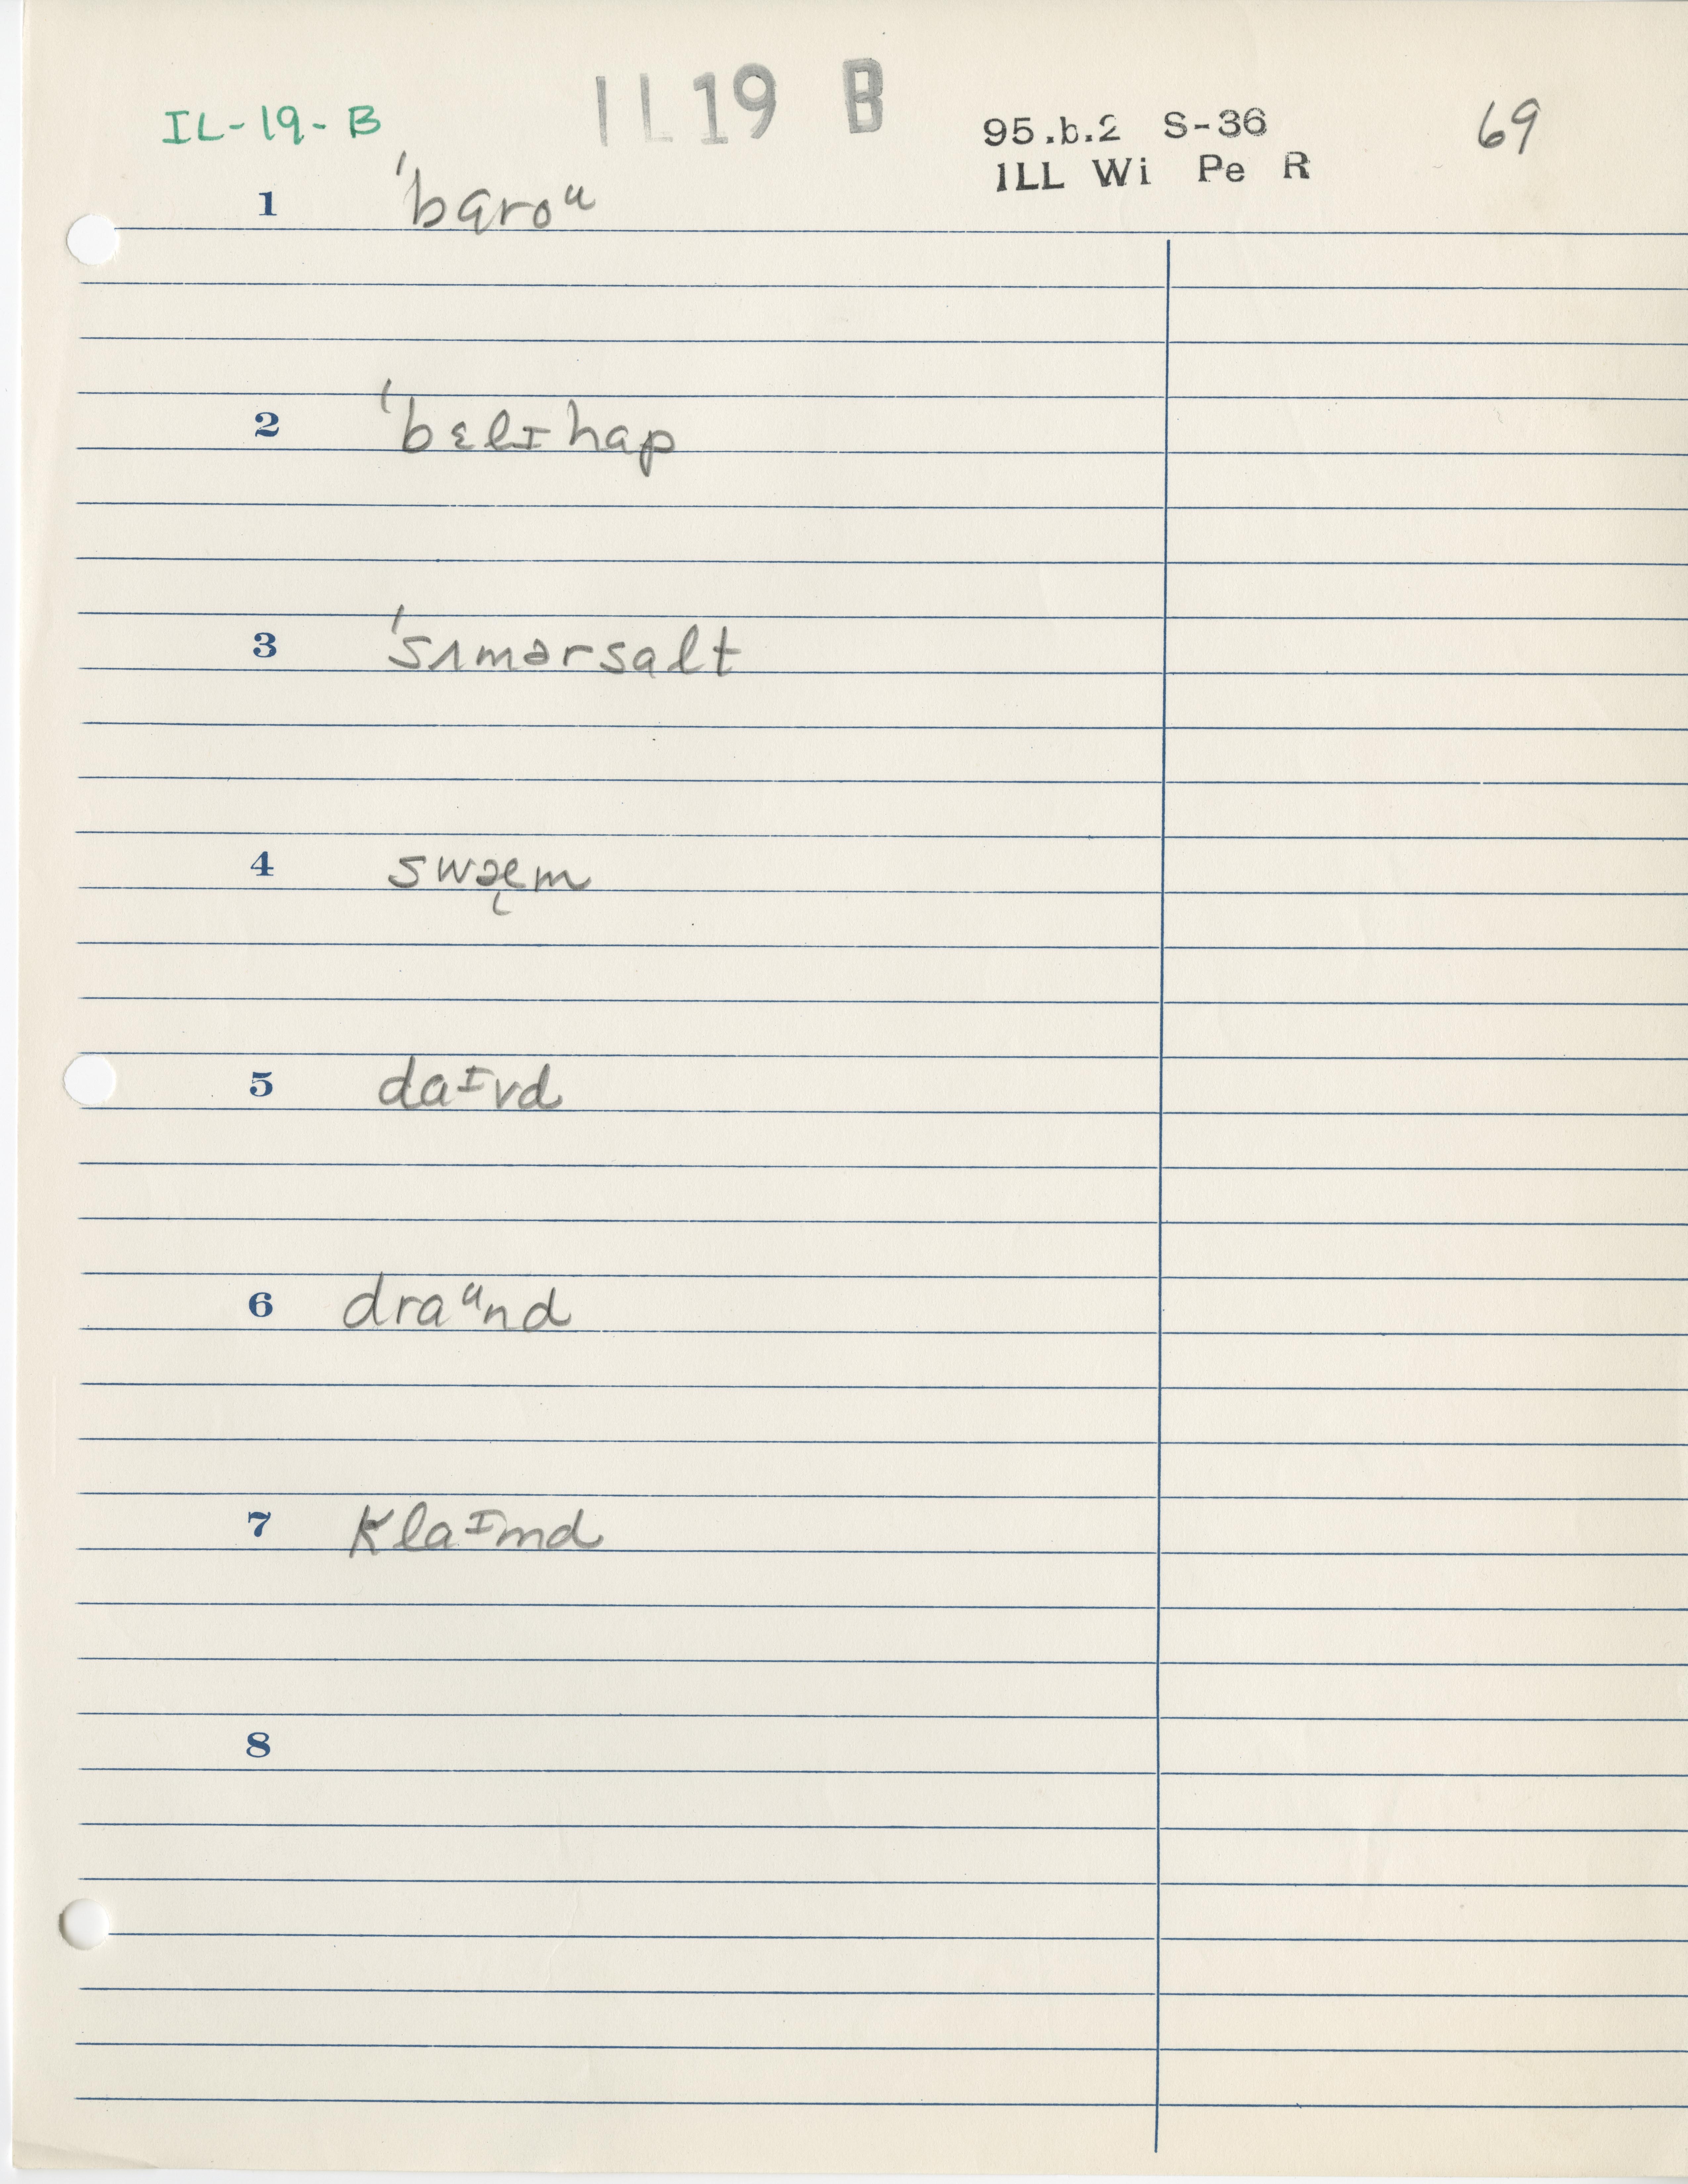 IL-19-B
IL19 B
95.b.2 S-36
ILL Wi Pe R
69
1 ˈbɑroᵘ
2 ˈbɛlɪhap
3 ˈsʌmərsalt
4 swæm
5 daᶦvd
6 draᵘnd
7 klaᶦmd
8